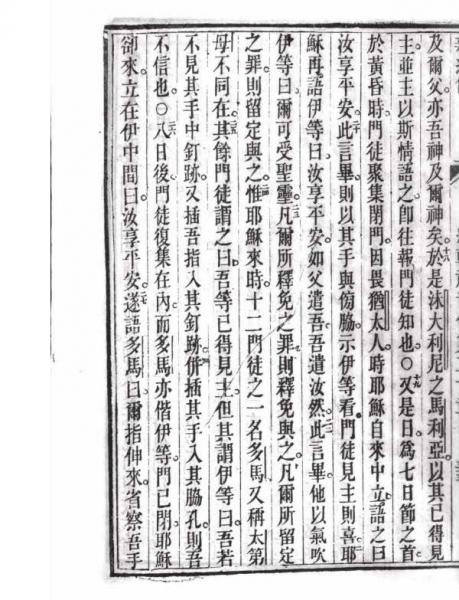 及爾父亦吾神及爾神矣。於是沬大利尼之馬利亞以其已得見
主並主以斯情語之。卽往報門徒知也。○又是日為七日節之首
於黃昏時門徒聚集閉門因畏猶太人時耶穌自來中立語之曰
汝享平安。此言畢則以其手與傍脇示伊等看門徒見主則喜耶
穌再語伊等曰汝享平安如父遣吾吾遣汝然此言畢他以氣吹
伊等曰爾可受聖靈凡爾所釋免之罪則釋免與之凡爾所留定
之罪則留定與之惟耶穌來時十二門徒之一名多馬又稱太第
母不同在其餘門徒謂之曰吾等已得見主但其謂伊等曰吾若
不見其手中釘跡又插吾指入其釘跡併插其手入其脇孔則吾
不信也。○八日後門徒復集在內而多馬亦偕伊等門已閉耶穌
卻來立在伊中間曰汝享平安。遂語多馬曰爾指伸來省察吾手